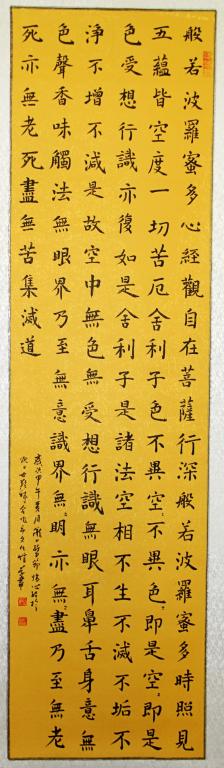 般若波羅蜜多心經觀自在菩薩行深般若波羅蜜多時照見
五蘊皆空度一切苦厄舍利子色不異空〻不異色〻即是空〻即是
色受想行識亦復如是舍利子是諸法空相不生不滅不垢不
淨不增不減是故空中無色無受想行識無眼耳鼻舌身意無
色聲香味觸法無眼界乃至無意識界無〻明亦無〻盡乃至無老
死亦無老死盡無苦集滅道
歲次甲午